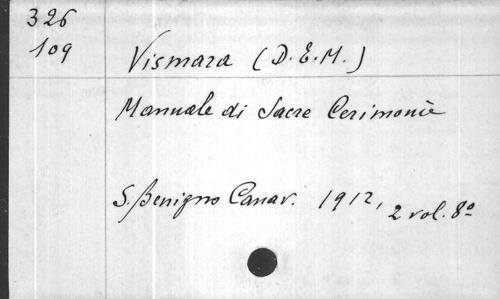 326
109
Vismara (D. E. M.)
Manuale di Sacre Cerimonie
S. Benigno Canav. 1912, 2 vol. 8º